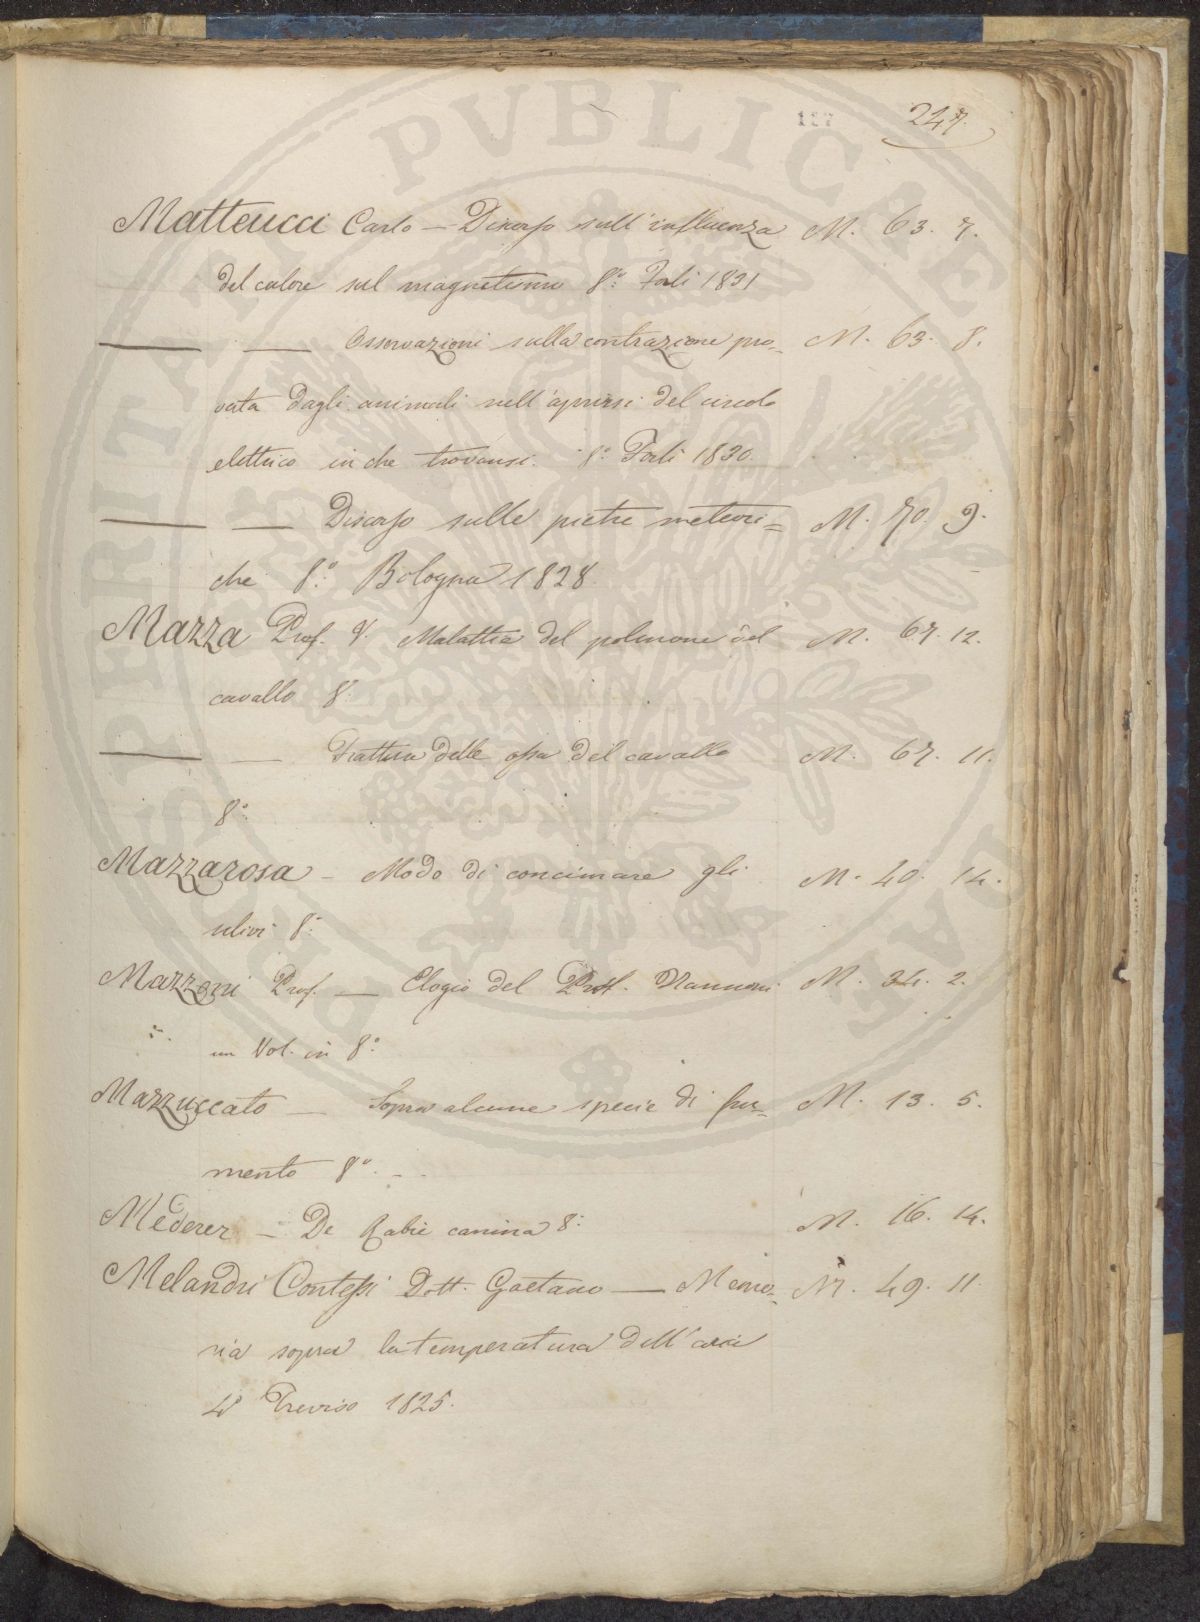 127 247.
Matteucci Carlo — Discorso sull'influenza M. 63. 7.
del calore sul magnetismo 8.° Forlì 1831
— — Osservazioni sulla contrazione pro= M. 63. 8.
vata dagli animali nell'aprirsi del circolo
elettrico in che trovansi. 8.° Forlì 1830.
— — Discorso sulle pietre meteori= M. 70. 9.
che 8.° Bologna 1828.
Mazza Prof. V. Malattia del polmone del M. 67. 12.
cavallo 8.°
— — Frattura delle ossa del cavallo M. 67. 11.
8.°
Mazzarosa — Modo di concimare gli M. 40. 14.
ulivi 8.°
Mazzoni Prof. — Elogio del Nannoni M. 34. 2.
un Vol. in 8.°
Mazzuccato — Sopra alcune specie di fru= M. 13. 5.
mento 8.°
Mederer — De Rabie canina 8.° M. 16. 14.
Melandri Contessi Dott. Gaetano — Memo= M. 49. 11.
ria sopra la temperatura dell'aria
4.° Treviso 1825.
PROSPERITATI PVBLICAE AVGENDAE